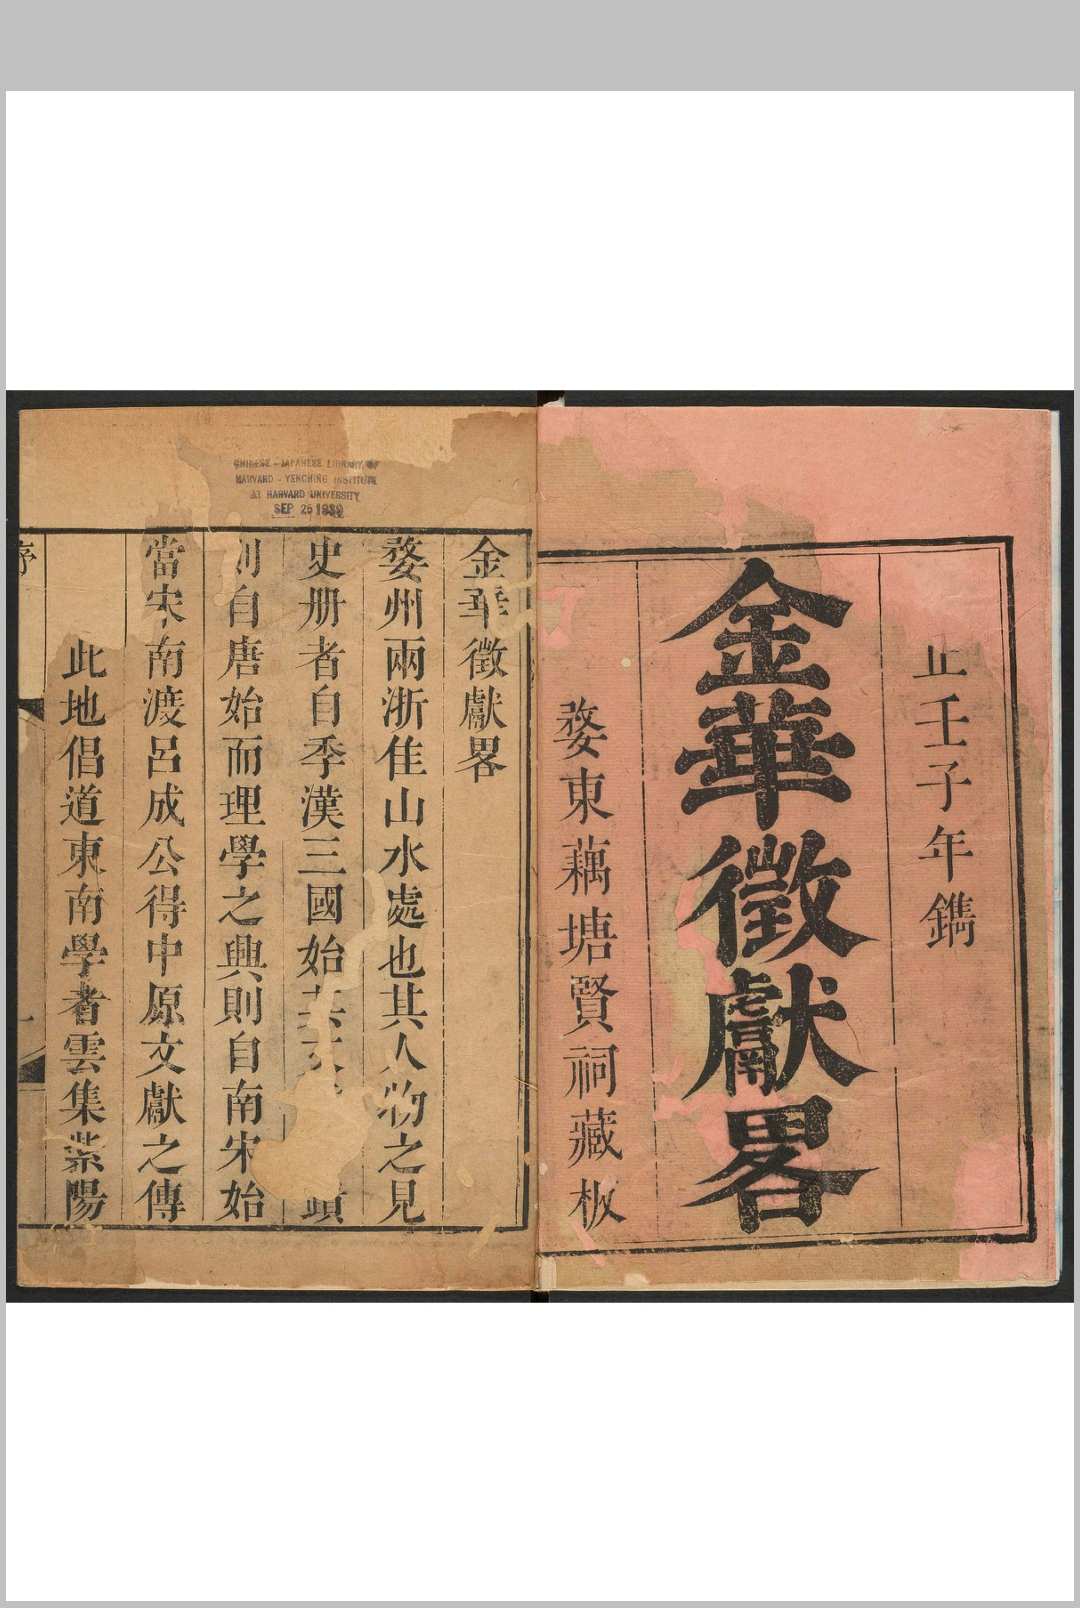 正壬子年鐫
金華徵獻畧
婺東藕塘賢祠藏板
CHINESE - JAPANESE LIBRARY OF
HARVARD - YENCHING INSTITUTE
AT HARVARD UNIVERSITY
SEP 26 1939
金華徵獻畧
婺州兩浙佳山水處也其人物之見
史册者自季漢三國始其文
則自唐始而理學之興則自南宋始
當宋南渡呂成公得中原文獻之傳
此地倡道東南學者雲集紫陽
序